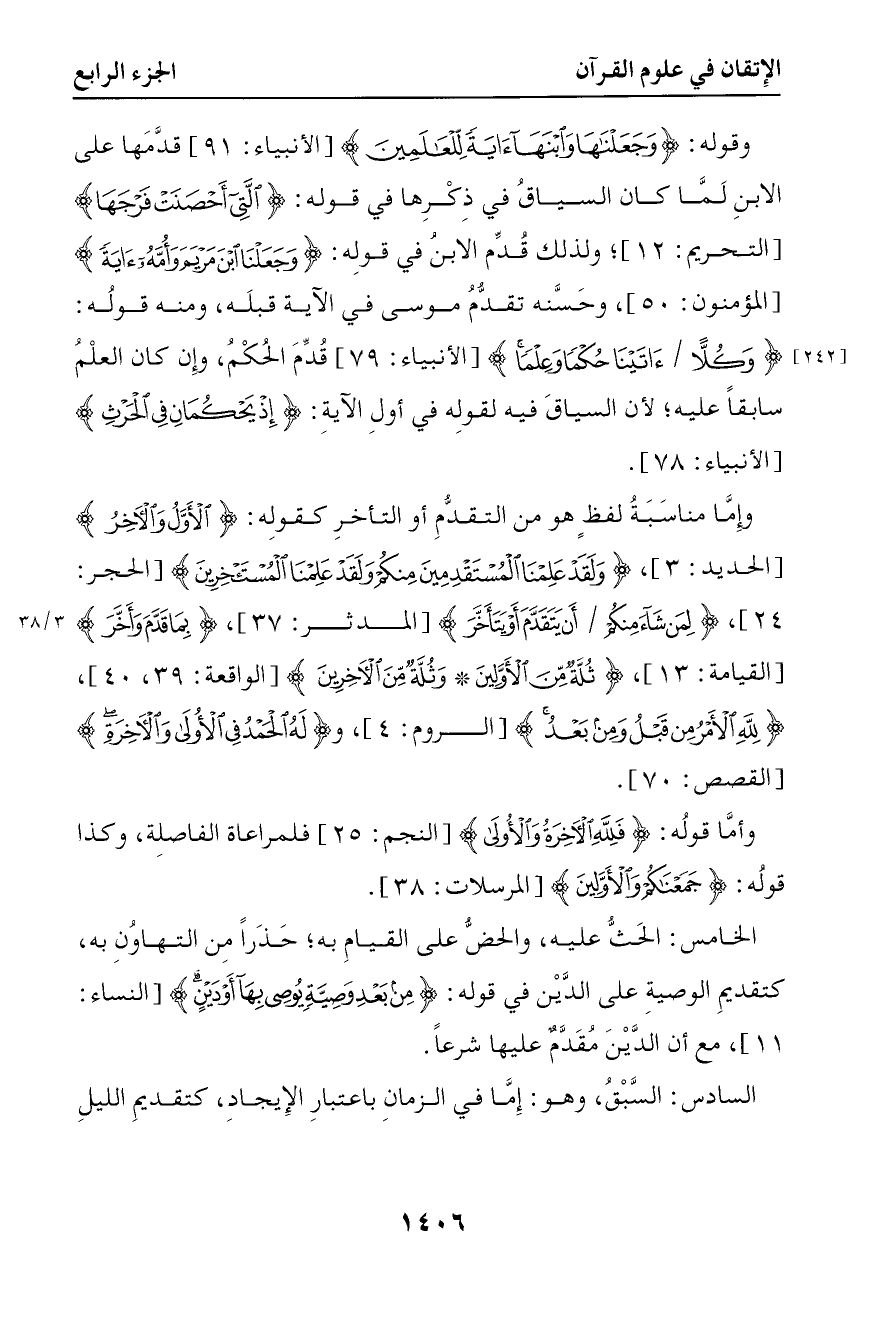 الإتقان في علوم القرآن الجزء الرابع
وقوله: ﴿وَجَعَلْنَٰهَا وَٱبْنَهَآ ءَايَةً لِّلْعَٰلَمِينَ﴾ [الأنبياء: ٩١] قدَّمَها على
الابنِ لَمَّا كان السياقُ في ذِكْرِها في قوله: ﴿ٱلَّتِىٓ أَحْصَنَتْ فَرْجَهَا﴾
[التحريم: ١٢]؛ ولذلك قُدِّم الابنُ في قوله: ﴿وَجَعَلْنَا ٱبْنَ مَرْيَمَ وَأُمَّهُۥٓ ءَايَةً﴾
[المؤمنون: ٥٠]، وحَسَّنه تقدُّمُ موسى في الآية قبلَه، ومنه قولُه:
﴿وَكُلًّا / ءَاتَيْنَا حُكْمًا وَعِلْمًا ۚ﴾ [الأنبياء: ٧٩] قُدِّمَ الحُكْمُ، وإن كان العلْمُ [٢٤٢]
سابقاً عليه؛ لأن السياقَ فيه لقوله في أولِ الآيةِ: ﴿إِذْ يَحْكُمَانِ فِى ٱلْحَرْثِ﴾
[الأنبياء: ٧٨].
وإمَّا مناسَبَةُ لفظٍ هو من التقدُّمِ أو التأخرِ كقوله: ﴿ٱلْأَوَّلُ وَٱلْآخِرُ﴾
[الحديد: ٣]، ﴿وَلَقَدْ عَلِمْنَا ٱلْمُسْتَقْدِمِينَ مِنكُمْ وَلَقَدْ عَلِمْنَا ٱلْمُسْتَـْٔخِرِينَ﴾ [الحجر:
٢٤]، ﴿لِمَن شَآءَ مِنكُمْ / أَن يَتَقَدَّمَ أَوْ يَتَأَخَّرَ﴾ [المدثر: ٣٧]، ﴿بِمَا قَدَّمَ وَأَخَّرَ﴾ ٣٨/٣
[القيامة: ١٣]، ﴿ثُلَّةٌ مِّنَ ٱلْأَوَّلِينَ * وَثُلَّةٌ مِّنَ ٱلْآخِرِينَ﴾ [الواقعة: ٣٩، ٤٠]،
﴿لِلَّهِ ٱلْأَمْرُ مِن قَبْلُ وَمِنۢ بَعْدُ ۚ﴾ [الروم: ٤]، و﴿لَهُ ٱلْحَمْدُ فِى ٱلْأُولَىٰ وَٱلْآخِرَةِ ۖ﴾
[القصص: ٧٠].
وأمَّا قولُه: ﴿فَلِلَّهِ ٱلْآخِرَةُ وَٱلْأُولَىٰ﴾ [النجم: ٢٥] فلمراعاة الفاصلِة، وكذا
قولُه: ﴿جَمَعْنَٰكُمْ وَٱلْأَوَّلِينَ﴾ [المرسلات: ٣٨].
الخامس: الحَثُّ عليه، والحضُّ على القيامِ به؛ حَذَراً مِن التهاوُنِ به،
كتقديمِ الوصيةِ على الدَّيْن في قوله: ﴿مِنۢ بَعْدِ وَصِيَّةٍ يُوصِى بِهَآ أَوْ دَيْنٍ ۗ﴾ [النساء:
١١]، مع أن الدَّيْنَ مُقَدَّمٌ عليها شرعاً.
السادس: السَّبْقُ، وهو: إمَّا في الزمانِ باعتبارِ الإيجادِ، كتقديمِ الليلِ
١٤٠٦